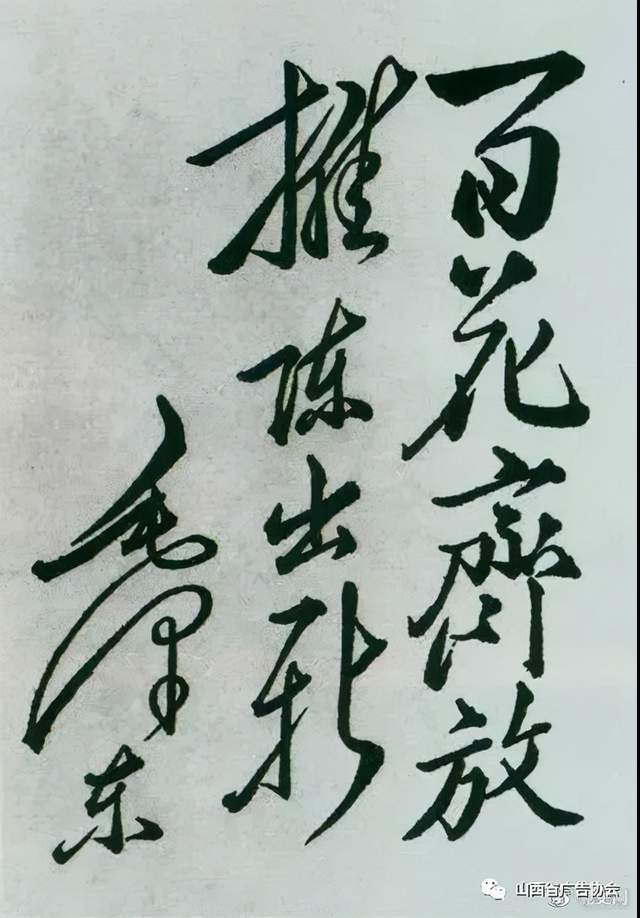 百花齊放
推陈出新
毛泽东
山西省广告协会